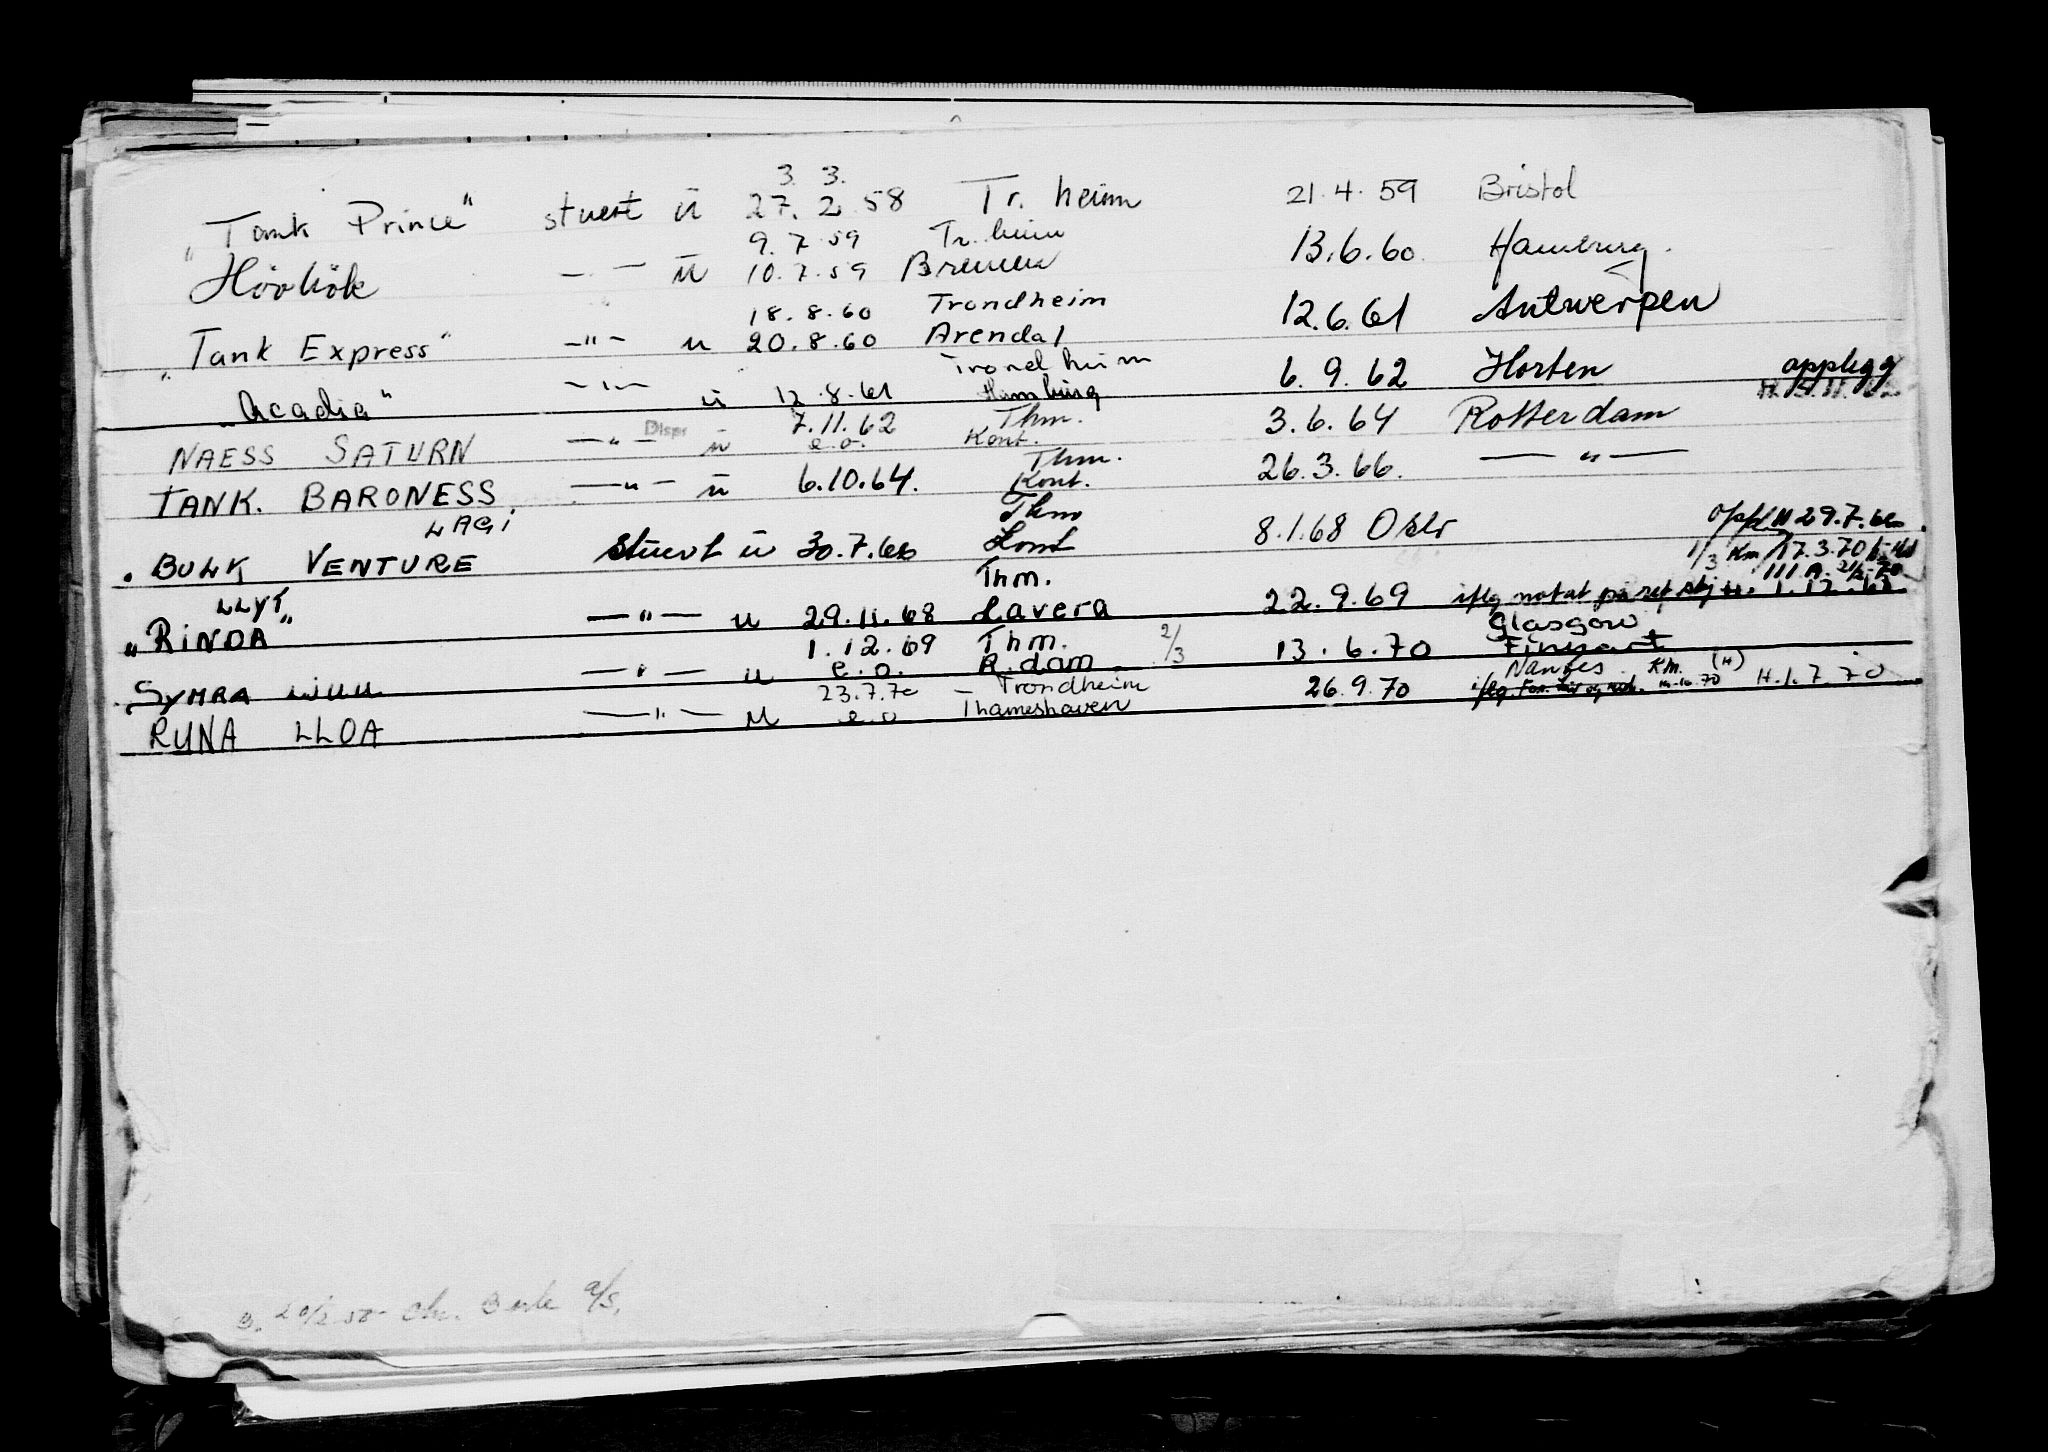 3. 3.
"Tank Prince" stuert u 27. 2. 58 Tr. heim 21. 4. 59 Bristol
9. 7. 59 Tr. heim
Hövkök — " — u 10. 7. 59 Bremen 13. 6. 60 Hamburg.
18. 8. 60 Trondheim
"Tank Express" — " — u 20. 8. 60 Arendal 12. 6. 61 Antwerpen
Trondheim
"Acadia" — " — u 12. 8. 61 Hamburg 6. 9. 62 Horten opplegg
Disp. 7. 11. 62 Thm.
NAESS SATURN — " — u e.o. Kont. 3. 6. 64 Rotterdam
Thm.
TANK. BARONESS — " — u 6. 10. 64. Kont. 26. 3. 66. — " —
LAGI Thm
BULK VENTURE stuert u 30. 7. 66 8. 1. 68 Oslo oppl 29. 7. 66
1/3 Km 17. 3. 70
LLYT Thm.
"RINDA" — " — u 29. 11. 68 Lavera 22. 9. 69 iflg notat på
1. 12. 69 Thm. 2/3 Glasgow
SYMRA — " — u e.o. R.dam 13. 6. 70 Finnart
23. 7. 70 — Trondheim Nantes Km. (H)
RUNA LLOA — " — u e.o Thameshaven 26. 9. 70 H. 1. 7. 70
B. a/s.